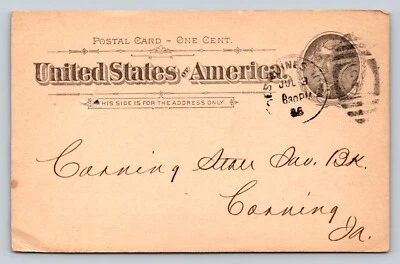 POSTAL CARD - ONE CENT.
United States of America.
THIS SIDE IS FOR THE ADDRESS ONLY.
DES MOINES
JUL
830PM
Corning State Sav. Bk.
Corning
Ia.